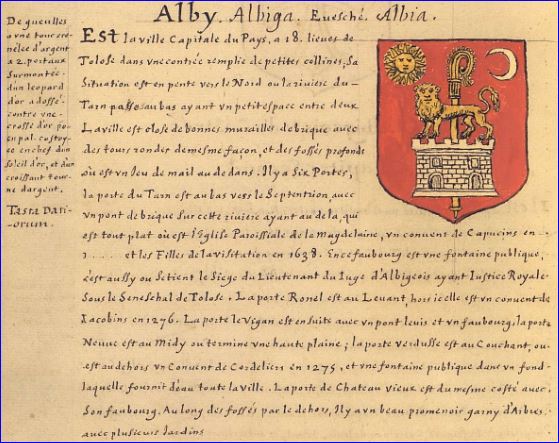 Alby. Albiga. Euesché. Albia.
De gueulles
a vne tour cre-
nelée d'argent
a 2. portaux
Surmontée
dun leopard
d'or adossé
contre vne
crosse d'or po
en pal. costoyé
en chef d'un
Soleil d'or, et d'un
croissant tour-
ne d'argent.
Tasta Dati-
orum.
Est la ville Capitale du Pays, a 18. lieues de
Tolose dans vne contrée remplie de petites collines, Sa
Situation est en pente vers le Nord ou la riuiere du
Tarn passe au bas ayant vn petit espace entre deux
La ville est close de bonnes murailles de brique auec
des tours ronder de mesme façon, et des fossés profonds
où est vn Jeu de mail au dedans. Il y a Six Portes,
la porte du Tarn est au bas vers le Septentrion, auec
vn pont de brique Sur cette riuiere ayant au dela, qui
est tout plat où est l'Eglise Paroissiale de la Magdelaine, vn conuent de Capucins en
1 . . . . . et les Filles de la visitation en 1638. En ce faubourg est vne fontaine publique,
c'est aussy ou Se tient le Siege du Lieutenant du Iuge d'Albigeois ayant Iustice Royale
Sous le Seneschal de Tolose. La porte Ronel est au Leuant, hors icelle est vn conuent de
Iacobins en 1276. La porte le vigan est en suite auec vn pont leuis et vn faubourg. la porte
Neuue est au Midy ou termine vne haute plaine ; la porte verdusse est au Couchant, ou
est au dehors vn Conuent de Cordeliers en 1275, et vne fontaine publique dans vn fond
laquelle fournit d'eau toute la ville. La porte de Chateau vieux est du mesme costé auec
Son faubourg. Au long des fossés par le dehors, Il y a vn beau promenoir garny d'Arbres
auec plusieurs Jardins